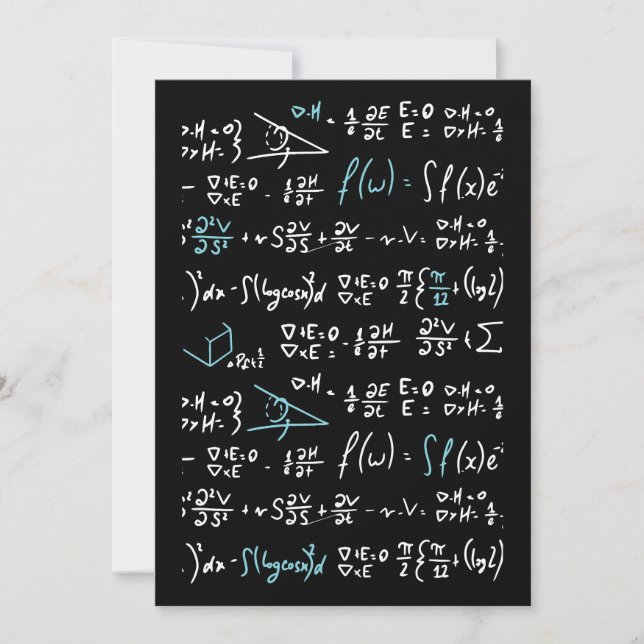 ∇·H = 1/e ∂E/∂t E=0 E= ∇·H=0 ∇×H= 1/e
∇·H=0 ∇×H= }
- ∇+E=0 ∇×E - 1/e ∂H/∂t f(ω) = ∫f(x)e⁻
∂²V/∂S² + ∿S ∂V/∂S + ∂V/∂t - ∿.V = ∇·H=0 ∇×H= 1/e
)² dx - ∫(log cosx)² d ∇+E=0 ∇×E π/2 { π/12 + ((log2)
∇+E=0 ∇×E= - 1/e ∂H/∂t ∂²V/∂S² + Σ
∇·H = 1/e ∂E/∂t E=0 E= ∇·H=0 ∇×H= 1/e
∇·H=0 ∇×H= }
- ∇+E=0 ∇×E - 1/e ∂H/∂t f(ω) = ∫f(x)e⁻
∂²V/∂S² + ∿S ∂V/∂S + ∂V/∂t - ∿.V = ∇·H=0 ∇×H= 1/e
)² dx - ∫(log cosx)² d ∇+E=0 ∇×E π/2 { π/12 + ((log2)